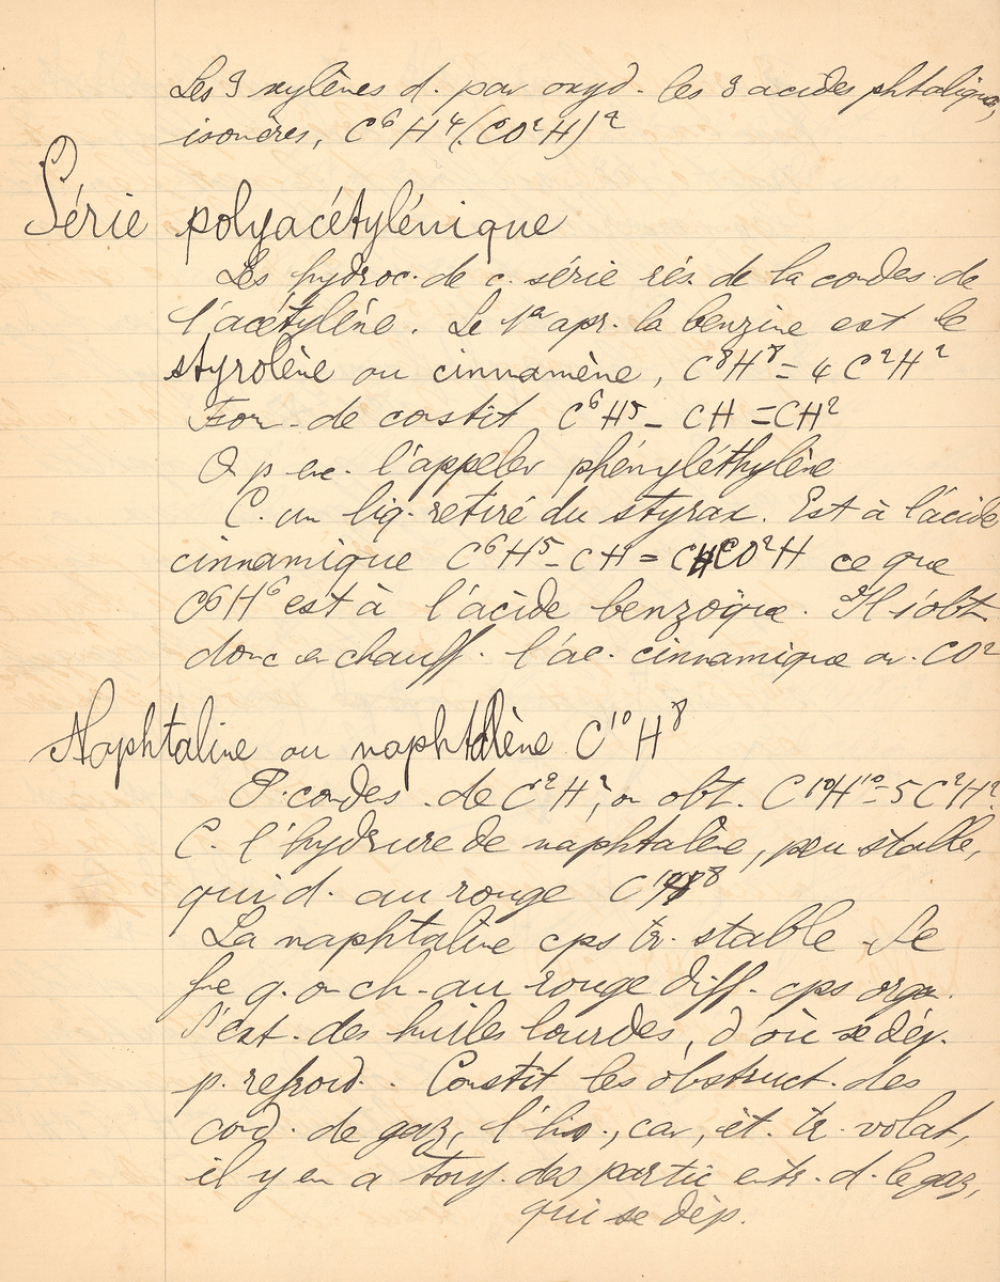 Les 3 xylènes d. par oxyd. les 3 acides phtaliques
isomères, C⁶H⁴(CO²H)²
Série polyacétylénique
Les hydroc. de c. série rés. de la condes. de
l'acétylène. Le 1er apr. la benzine est le
styrolène ou cinnamène, C⁸H⁸ = 4 C²H²
For. de constit C⁶H⁵ - CH = CH²
O p enc. l'appeler phényléthylène
C. un liq. retiré du styrax. Est à l'acide
cinnamique C⁶H⁵ - CH = CHCO²H ce que
C⁶H⁶ est à l'acide benzoïque. Il s'obt
donc en chauff. l'ac. cinnamique av. CO²
Naphtaline ou naphtalène C¹⁰H⁸
P. condes. de C²H², on obt. C¹⁰H¹⁰ = 5C²H².
C. l'hydrure de naphtalène, peu stable,
qui d. au rouge C¹⁰H⁸
La naphtaline cps tr. stable Se
fme q. on ch. au rouge diff. cps orga.
S'ext. des huiles lourdes, d'où se dép.
p. refroid. Constit les obstruct. des
cond. de gaz, l'hiv., car, ét. tr. volat,
il y en a touj. des partic entr. d. le gaz,
qui se dép.